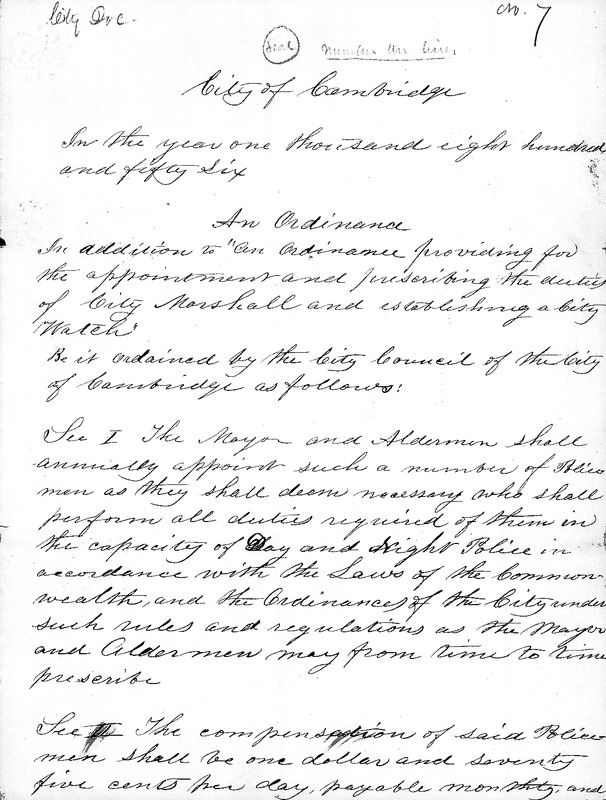 City Doc.
No. 7
Seal
City of Cambridge
In the year one thousand eight hundred
and fifty Six
An Ordinance
In addition to "An Ordinance providing for
the appointment and prescribing the duties
of City Marshall and establishing a City
Watch"
Be it Ordained by the City Council of the City
of Cambridge as follows:
Sec I The Mayor and Aldermen shall
annually appoint such a number of Police
men as they shall deem necessary who shall
perform all duties required of them in
the capacity of Day and Night Police in
accordance with the Laws of the Common
wealth, and the Ordinances of the City under
such rules and regulations as the Mayor
and Aldermen may from time to time
prescribe
Sec II The compensation of said Police
men shall be one dollar and seventy
five cents per day, payable monthly, and